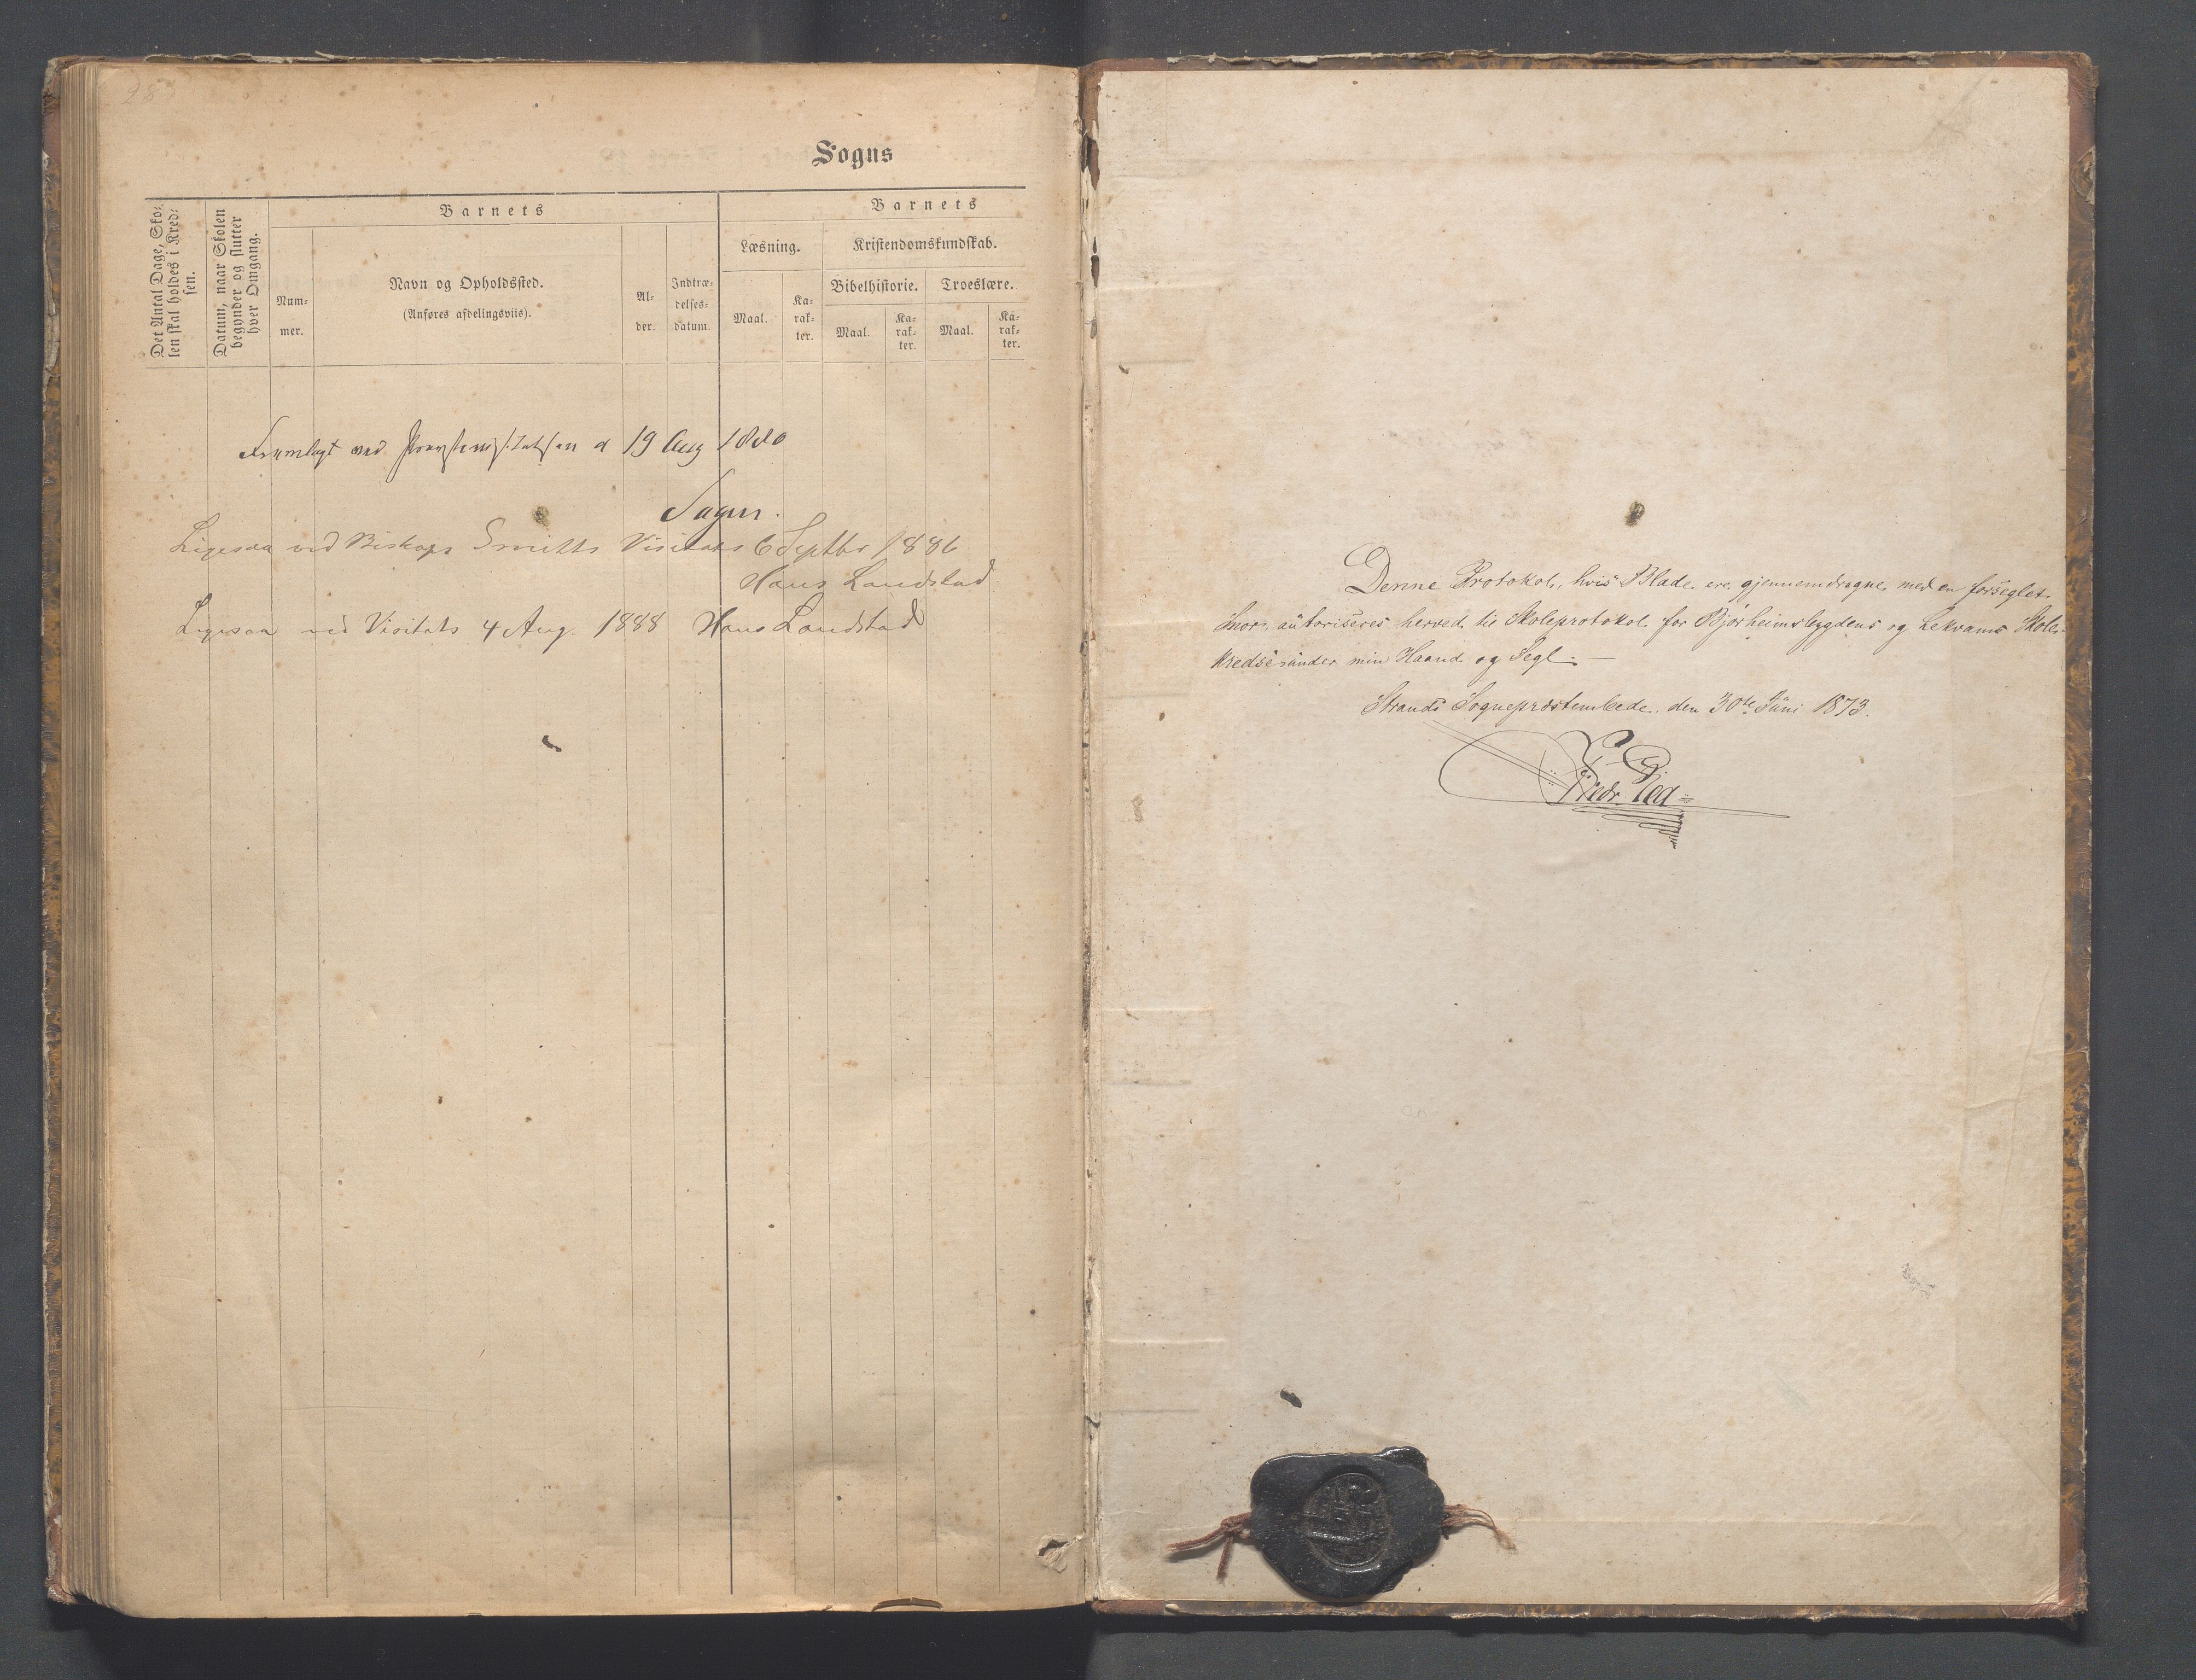 28
Sogns
Det Antal Dage, Sko-
len skal holdes i Kred-
sen.
Datum, naar Skolen
begynder og slutter
hver Omgang.
Barnets
Num-
mer.
Navn og Opholdssted.
(Anføres afdelingsviis).
Al-
der.
Indtræ-
delses-
datum.
Barnets
Læsning.
Kristendomskundskab.
Bibelhistorie.
Troeslære.
Maal.
Ka-
rak-
ter.
Maal.
Ka-
rak-
ter.
Maal.
Ka-
rak-
ter.
Fremlagt ved Provstevisitatsen d 19 Aug 1880
Ligesaa ved Biskops Smitts Visitats 6 Septbr 1886
Hans Landstad
Ligesaa ved Visitats 4 Aug. 1888 Hans Landstad
Denne Protokol, hvis Blade ere gjennemdragne med en forseglet
Snor, autoriseres herved til Skoleprotokol for Bjørheimsbygdens og Lekvams Skole-
kredse under min Haand og Segl. —
Strands Sognepræstembede den 30te Juni 1873.
Fredr.